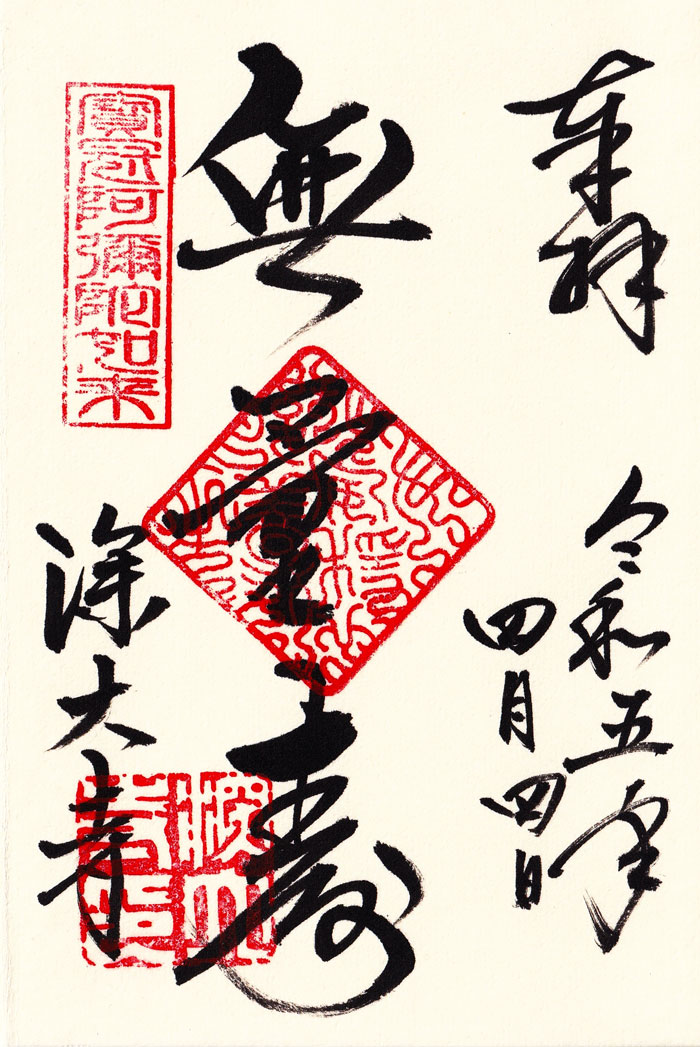 奉拝
令和五年
四月四日
無量壽
寶冠阿彌陀如来
深大寺